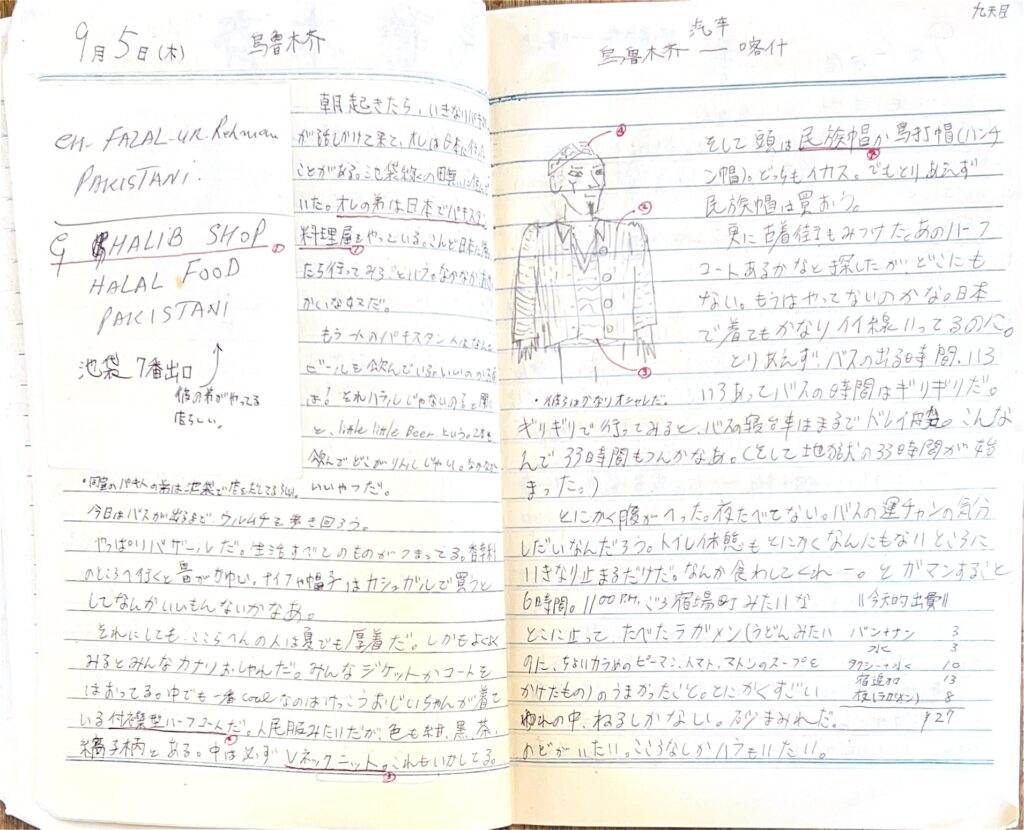 9月5日(木) 烏魯木斉
en- FAZAL-UR-Rehman
PAKISTANI.
G SHALIB SHOP ①
HALAL FOOD
PAKISTANI
池袋 7番出口
彼の弟がやってる
店らしい。
朝起きたら、いきなりパキ
が話しかけて来て、オレは日本に
ことがある。池袋 の
いた。オレの弟は日本でパキスタン
料理屋をやっている。こんど日本に
たら行ってみることにしよう。なかなか
かいな奴だ。
もう一人のパキスタン人はなん
ビールを飲んでいる。いいのか
は?それハラルじゃないのと聞く
と、little little Beer という。
飲んで どこが りんしじゃい。なかなか
いいやつだ。
・同室のパキ人の弟は池袋で店を出してるらしい。
今日はバスが出るまで、ウルムチを歩き回ろう。
やっぱりバザールだ。生活すべてのものがつまってる。香辛料
のところへ行くと鼻がかゆい。ナイフや帽子はカシュガルで買うと
してなんかいいもんないかなあ。
それにしても、ここらへんの人は夏でも厚着だ。しかもよくよく
みるとみんなカナリおしゃれだ。みんなジャケットかコートを
はおってる。中でも一番coolなのはけっこうおじいちゃんが着て
いる付襟型ハーフコートだ。人民服みたいだが、色も紺、黒、茶、
縞子柄とある。中は必ずVネックニット。これもいかしてる。
九天目
汽车
烏魯木斉 — 喀什
そして頭は民族帽か鳥打帽(ハンチ
ング帽)。どっちもイカス。でもとりあえず
民族帽は買おう。
更に古着街もみつけた。あのハーフ
コートあるかなと探したが、どこにも
ない。もうはやってないのかな。日本
で着てもかなりイイ線いってるのに。
とりあえず、バスの出る時間、いろ
いろあってバスの時間はギリギリだ。
④
②
③
・彼らはかなりオシャレだ。
ギリギリで行ってみると、バスの寝台車はまるでドレイ船。こんな
んで33時間もつんかなあ。(そして地獄の33時間が始
まった。)
とにかく腹がへった。夜たべてない。バスの運チャンの気分
しだいなんだろう。トイレ休憩もとにかくなんにもないところに
いきなり止まるだけだ。なんか食わしてくれー。とガマンすること
6時間。11:00P.M.ごろ宿場町みたいな
とこに止って、たべたラガメン(うどんみたい
のに、ちょいカラめのピーマン、トマト、マトンのスープを
かけたもの)のうまかったこと。とにかくすごい
ゆれの中、ねるしかない。砂まみれだ。
のどがいたい。こころなしかハラもいたい。
〃今天的出費〃
パン+ナン 3
水 3
タクシー+水 10
宿追加 13
夜(ラガメン) 8
¥27